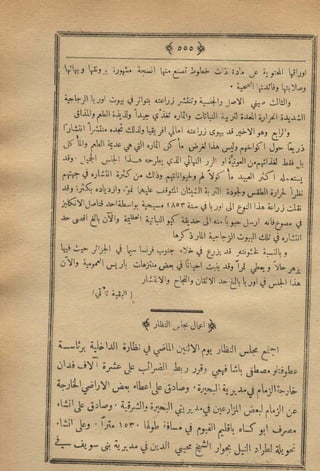 ﴿ ٥٥٥ ﴾
اوراقها المحتوية على مادة ذات خطوط تصنع منها انسجة مشهورة برونقها وبهائها
وصلابتها وفائدتها الصحية ·
والثالث صيني الاصل والجنسية وتنتشر زراعته بتواتر في بيوت اوربا الزجاجية
الشديدة الحرارة المعدة لتربية النباتات واثماره تغذي جيداً ولذيذة الطعم والمذاق
والرابع وهو الاخير قد يهوى زراعته اهالي افريقيا ولذلك تجده منتشراً انتشاراً
ذريعاً حول اكواخهم وليس هذا لغرض ما كل اثماره التي هي عديمة الطعم والمأكل
بل فقط لغذائهم من
يستعمله اكثر العبيد مأكولاً لهم ولحيواناتهم وذلك من كثرة انتشاره في جهتهم
نظراً لحرارة الطقس ولجودة التربة الشيئان المتوقف عليهما نموه وازدياده بكثرة وقد
نقلت زراعة هذا النوع الى اوربا في سنة ١٨٥٣ مسيحية بواسطة احد قناصل الانكليز
في مصوع فانه ارسل حبوباً منه الى حديقة كيو النباتية العظيمة والآن بالغ اقصى حد
انتشاره في تلك البيوت الزجاجية المار ذكرها
وبالنسبة لخشونته قد يزرع في خلاء جنوب فرنسا سيما في الجزائر حيث فيها
يزهر حالاً ويعطي ثمراً وقد ينبت احياناً في بعض منتزهات باريس العمومية والآن
هذا الجنس في اوربا بالغ حد الاتقان والنجاح والانتشار
( البقية تأتي )
﴿ اعمال مجلس النظار ﴾
اجتمع مجلس النظار يوم الاثنين الماضي في نظارة الداخلية برئاسة
عطوفتلو مصطفى باشا فهمي وقرر ربط الضرائب على عشرة الاف فدان
خارجة الزمام في مديرية البحيرة · وصادق على اعطاء بعض الاراضي الخارجة
عن الزمام لبعض المزارعين في مديريتي البحيرة والشرقية · وصادق على انشاء
مصرف ابو كساه باقليم الفيوم في مسافة طولها ١٥٣٠ متراً · وعلى انشاء
تحويلة لطراد النيل بجوار الشيخ محيي الدين في مديرية بني سويف في